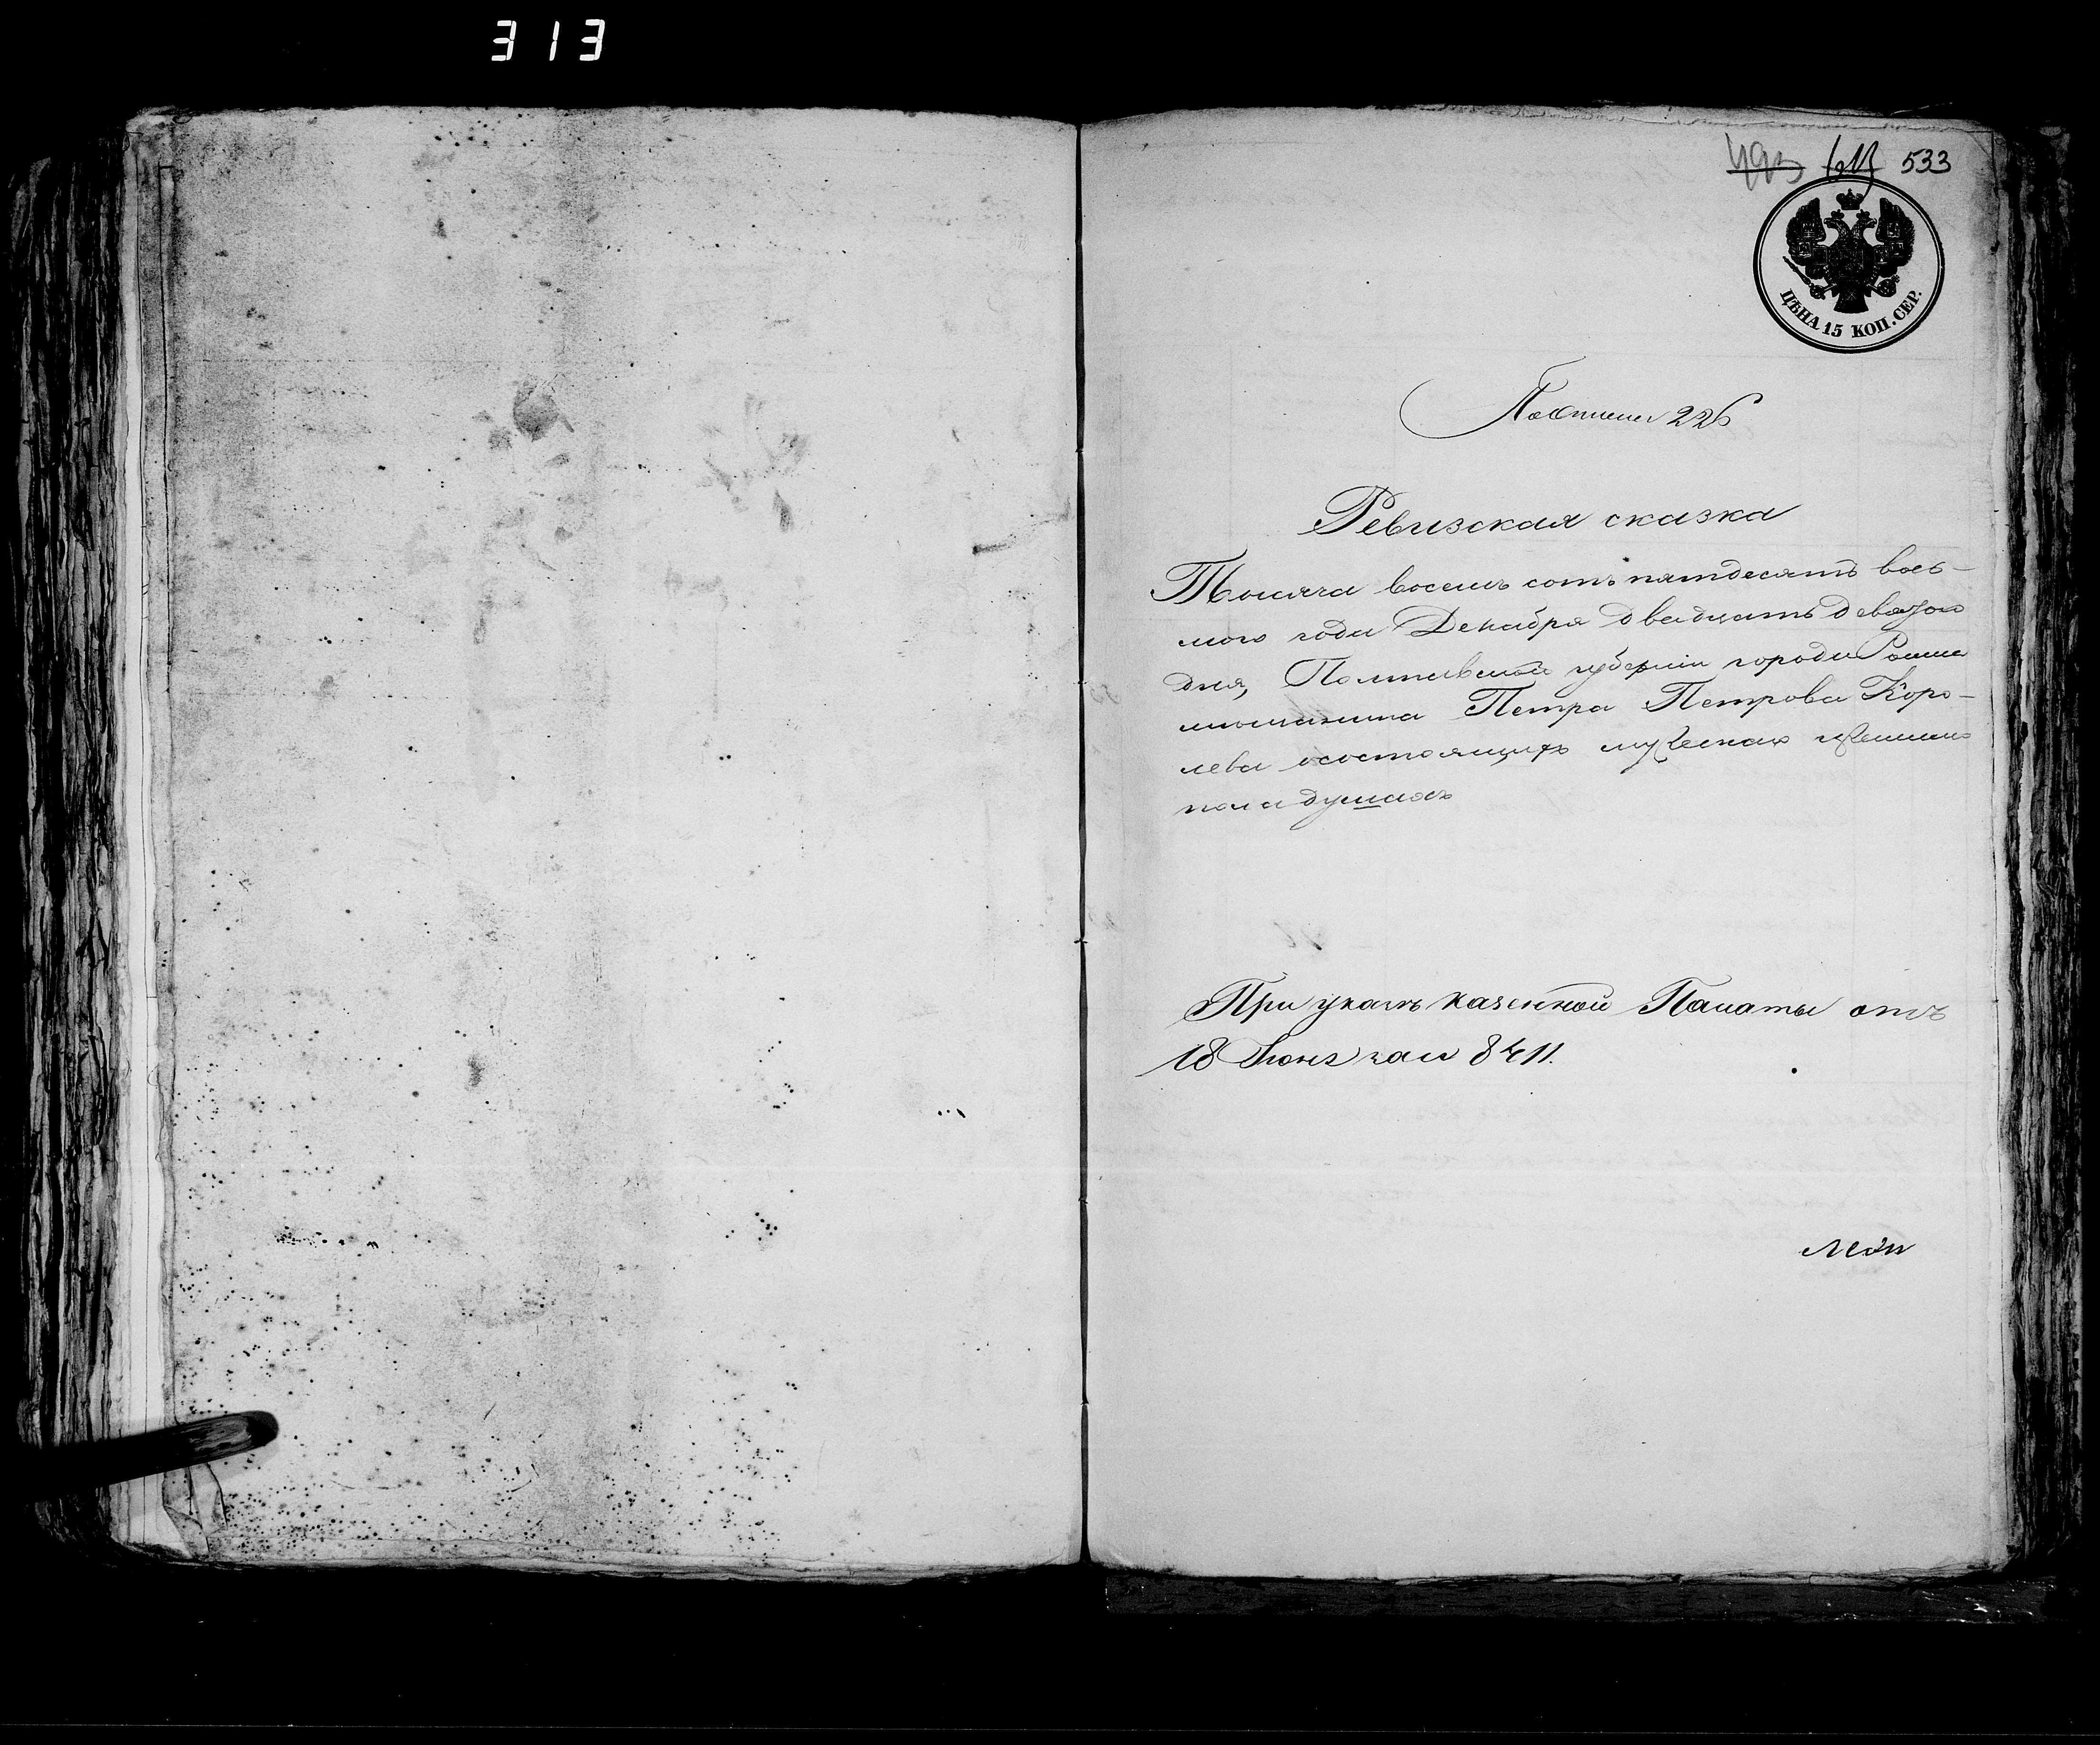 313
533
ЦѢНА 15 КОП. СЕР.
226
Ревизская сказка
Тысяча восемь сотъ пятдесятъ вось-
мого года Декабря двадцать девятого
дня, Полтавской губернiи города Ромна
мѣщанина Петра Петрова Коро-
лева о состоящихъ мужеска и женска
пола душахъ
При указѣ казенной Палаты отъ
18 Iюня за № 8411.